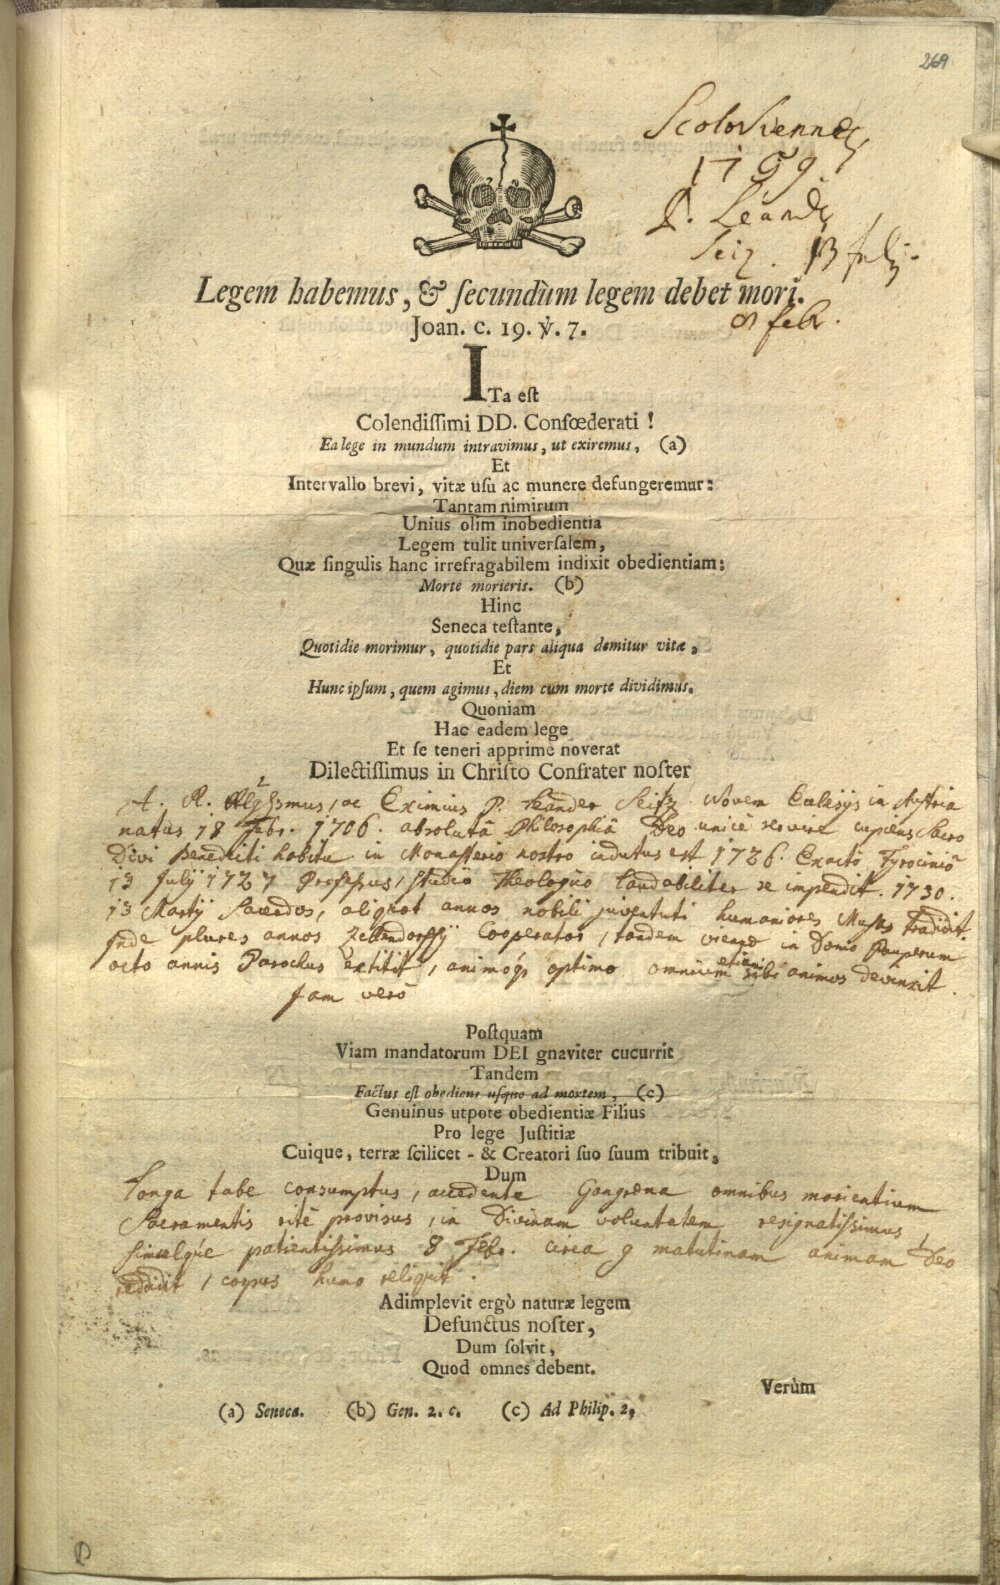 269
Scoto Viennæ
1759.
P. Leand.
Seiz. 13 Julij.
8 febr.
Legem habemus, & ſecundùm legem debet mori.
Joan. c. 19. ℣. 7.
ITa eſt
Colendiſſimi DD. Confœderati !
Ea lege in mundum intravimus, ut exiremus, (a)
Et
Intervallo brevi, vitæ uſu ac munere defungeremur:
Tantam nimirum
Unius olim inobedientia
Legem tulit univerſalem,
Quæ ſingulis hanc irrefragabilem indixit obedientiam:
Morte morieris. (b)
Hinc
Seneca teſtante,
Quotidie morimur, quotidie pars aliqua demitur vitæ,
Et
Hunc ipſum, quem agimus, diem cum morte dividimus.
Quoniam
Hac eadem lege
Et ſe teneri apprimè noverat
Dilectiſſimus in Chriſto Confrater noſter
A. R. Rlgsmus, ac Eximius P. Leander Seitz Novem Ecclesijs in Austria
natus 18 Febr. 1706. absolutâ Philosophiâ Deo unicè servire cupiens Sacro
Divi Benedicti habitu in Monasterio nostro indutus est 1726. Exacto Tyrociniô
13 Julij 1727 Professus, studio Theologico laudabiliter se impendit. 1730.
13 Martij Sacerdos, aliquot annos nobili juventuti humaniores Musas tradidit.
Inde plures annos Zellendorffij Cooperator, tandem viennæ in Domo Pauperum
octo annis Parochus extitit, animóq; optimo omnium etiam sibi animos devinxit.
Jam verò
Poſtquam
Viam mandatorum DEI gnaviter cucurrit
Tandem
Factus eſt obediens uſque ad mortem, (c)
Genuinus utpote obedientiæ Filius
Pro lege Juſtitiæ
Cuique, terræ ſcilicet - & Creatori ſuo ſuum tribuit,
Dum
Longa tabe consumptus, accedente Gangræna omnibus morientium
Sacramentis ritè provisus, in Divinam voluntatem resignatissimus
simulque patientissimus 8 Febr. circa 9 matutinam animam Deo
reddidit, corpus humo reliquit.
Adimplevit ergò naturæ legem
Defunctus noſter,
Dum ſolvit,
Quod omnes debent.
Verùm
(a) Seneca. (b) Gen. 2. c. (c) Ad Philip. 2,